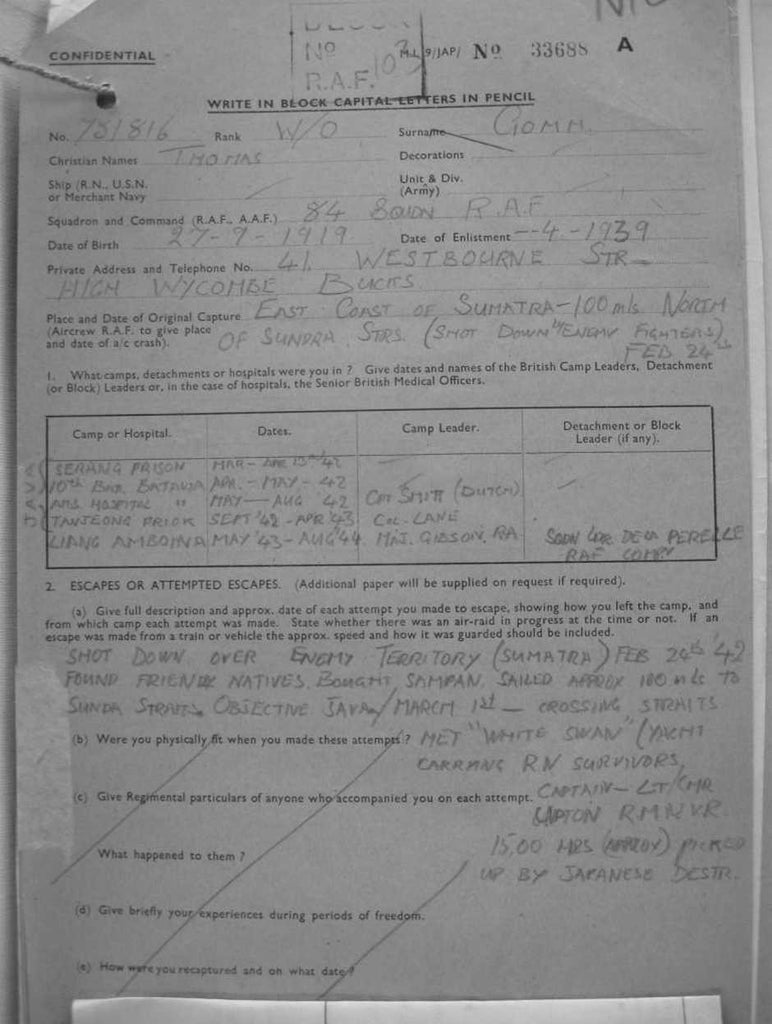 CONFIDENTIAL
BLOCK
No 103
R.A.F.
M.I. 9/JAP/ No 33688 A
WRITE IN BLOCK CAPITAL LETTERS IN PENCIL
No. 781816 Rank W/O Surname GOMM.
Christian Names THOMAS Decorations
Ship (R.N., U.S.N. or Merchant Navy
Unit & Div. (Army)
Squadron and Command (R.A.F., A.A.F.) 84 SQUDN R.A.F
Date of Birth 27-9-1919 Date of Enlistment --4-1939
Private Address and Telephone No. 41, WESTBOURNE STR
HIGH WYCOMBE BUCKS
Place and Date of Original Capture EAST COAST OF SUMATRA-100 mls NORTH
(Aircrew R.A.F. to give place OF SUNDRA STRS. (SHOT DOWN BY ENEMY FIGHTERS)
and date of a/c crash). FEB 24th
1. What camps, detachments or hospitals were you in? Give dates and names of the British Camp Leaders, Detachment
(or Block) Leaders or, in the case of hospitals, the Senior British Medical Officers.
Camp or Hospital. Dates. Camp Leader. Detachment or Block Leader (if any).
SERANG PRISON MAR- APR 13th '42
10th BAT. BATAVIA APR. - MAY - 42
HOSPITAL " MAY — AUG '42 CPT SMITT (DUTCH)
TANJEONG PRIOK SEPT '42 - APR '43 COL- LANE
LIANG AMBOINA MAY '43 - AUG '44 MAJ. GIBSON, RA SQDN LDR. DE LA PERELLE
RAF COMM
2. ESCAPES OR ATTEMPTED ESCAPES. (Additional paper will be supplied on request if required).
(a) Give full description and approx. date of each attempt you made to escape, showing how you left the camp, and
from which camp each attempt was made. State whether there was an air-raid in progress at the time or not. If an
escape was made from a train or vehicle the approx. speed and how it was guarded should be included.
SHOT DOWN OVER ENEMY TERRITORY (SUMATRA) FEB 24th '42
FOUND FRIENDLY NATIVES, BOUGHT SAMPAN, SAILED APPROX 100 mls TO
SUNDA STRAITS. OBJECTIVE JAVA / MARCH 1st — CROSSING STRAITS
(b) Were you physically fit when you made these attempts? MET "WHITE SWAN" (YACHT
CARRANG RN SURVIVORS,
(c) Give Regimental particulars of anyone who accompanied you on each attempt. CAPTAIN - LT/CMR
UPTON R.M.N.V.R.
What happened to them? 15,00 HRS (APPROX) PICKED
UP BY JAPANESE DESTR.
(d) Give briefly your experiences during periods of freedom.
(e) How were you recaptured and on what date?